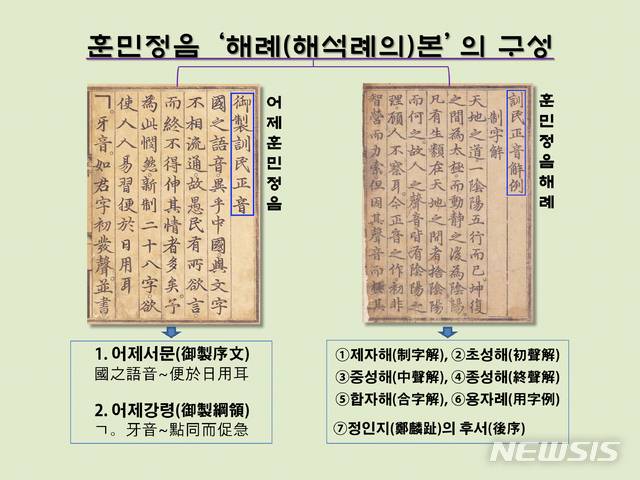 훈민정음 ‘해례(해석례의)본’ 의 구성
어제훈민정음
御製訓民正音
國之語音。異乎中國與文字
不相流通。故愚民有所欲言
而終不得伸其情者多矣。予
為此憫然。新制二十八字。欲
使人人易習便於日用耳
ㄱ。牙音。如君字初發聲。並書
훈민정음해례
訓民正音解例
制字解
天地之道一陰陽五行而已坤復
之間為太極而動靜之後為陰陽
凡有生類在天地之間者捨陰陽
而何之。故人之聲音皆有陰陽之
理。顧人不察耳。今正音之作。初非
智營而力索。但因其聲音而極其
1. 어제서문(御製序文)
國之語音~便於日用耳
2. 어제강령(御製綱領)
ㄱ。牙音~點同而促急
①제자해(制字解), ②초성해(初聲解)
③중성해(中聲解), ④종성해(終聲解)
⑤합자해(合字解), ⑥용자례(用字例)
⑦정인지(鄭麟趾)의 후서(後序)
NEWSIS